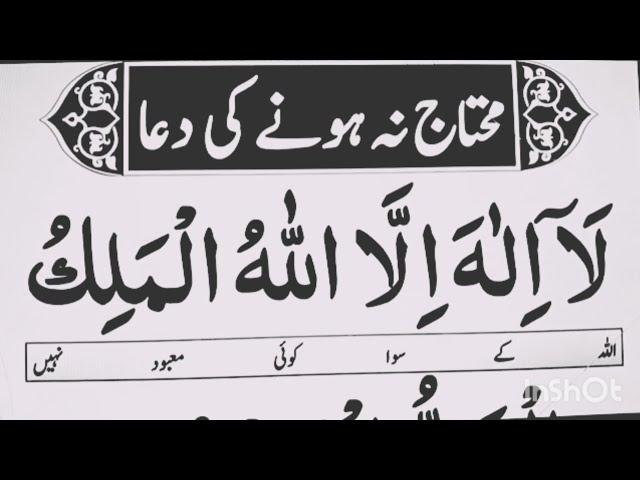 محتاج نہ ہونے کی دعا
لَآ اِلٰهَ اِلَّا اللّٰهُ الْمَلِكُ
اللہ کے سوا کوئی معبود نہیں
InShOt